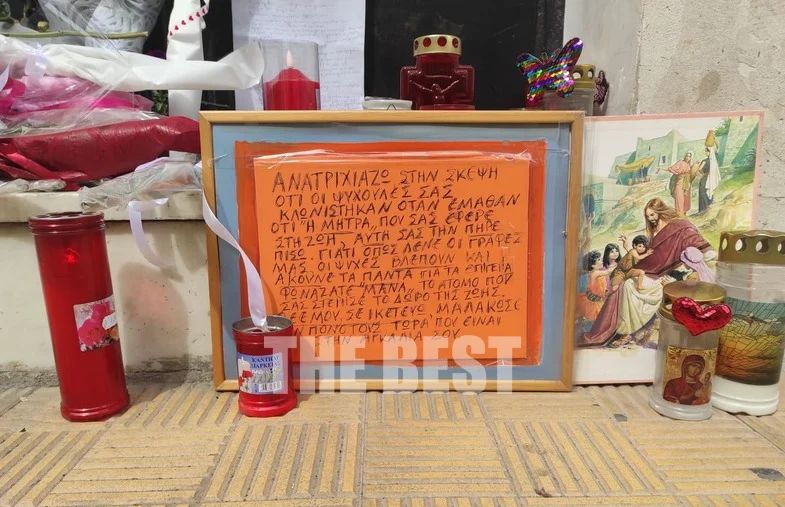 ΑΝΑΤΡΙΧΙΑΖΩ ΣΤΗΝ ΣΚΕΨΗ
ΟΤΙ ΟΙ ΨΥΧΟΥΛΕΣ ΣΑΣ
ΚΛΟΝΙΣΤΗΚΑΝ ΟΤΑΝ ΕΜΑΘΑΝ
ΟΤΙ "Η ΜΗΤΡΑ", ΠΟΥ ΣΑΣ ΕΦΕΡΕ
ΣΤΗ ΖΩΗ, ΑΥΤΗ ΣΑΣ ΤΗΝ ΠΗΡΕ
ΠΙΣΩ. ΓΙΑΤΙ ΟΠΩΣ ΛΕΝΕ ΟΙ ΓΡΑΦΕΣ
ΜΑΣ, ΟΙ ΨΥΧΕΣ ΒΛΕΠΟΥΝ ΚΑΙ
ΑΚΟΥΝΕ ΤΑ ΠΑΝΤΑ ΓΙΑ ΤΑ ΕΠΙΓΕΙΑ
ΦΩΝΑΖΑΤΕ "ΜΑΝΑ", ΤΟ ΑΤΟΜΟ ΠΟΥ
ΣΑΣ ΣΤΕΡΗΣΕ ΤΟ ΔΩΡΟ ΤΗΣ ΖΩΗΣ.
ΘΕΕ ΜΟΥ, ΣΕ ΙΚΕΤΕΥΩ ΜΑΛΑΚΩΣΕ
ΠΟΝΟ ΤΟΥΣ ΤΩΡΑ ΠΟΥ ΕΙΝΑΙ
ΣΤΗΝ ΑΓΚΑΛΙΑ ΣΟΥ
THE BEST